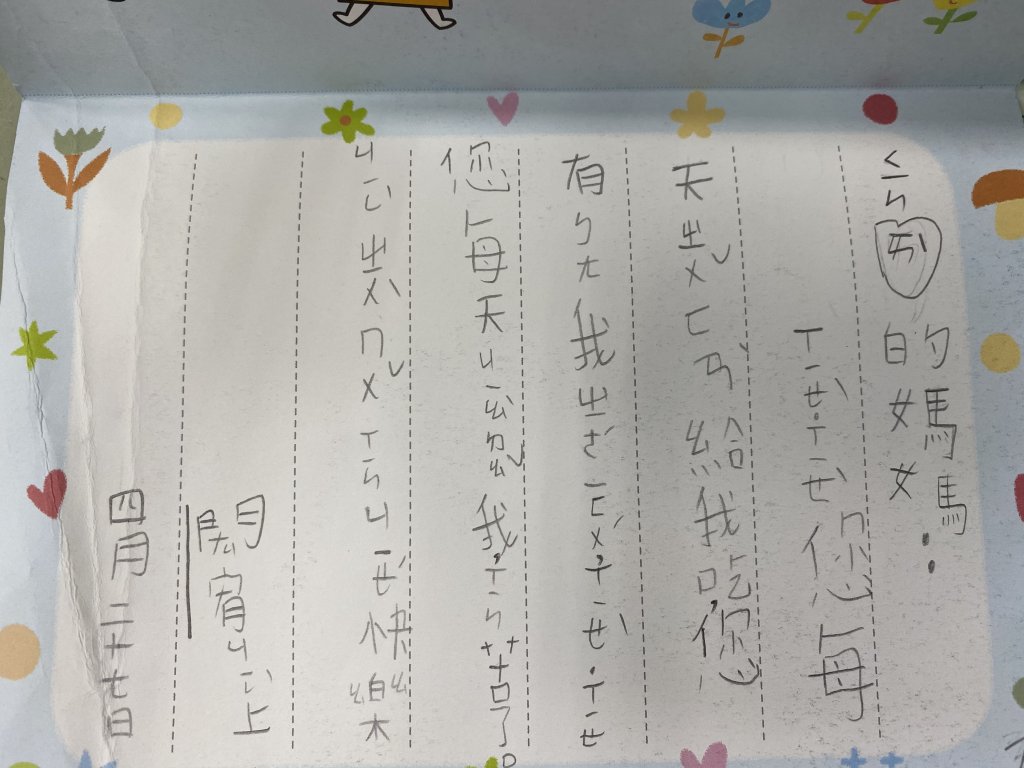 ㄑㄧㄣㄞˋ的媽媽：
ㄒㄧㄝˋ˙ㄒㄧㄝˋ您每
天ㄓㄨˇㄈㄢˋ給我吃,您
有ㄅㄤ我ㄓㄜˊㄧㄈㄨˊ,ㄒㄧㄝˋ˙ㄒㄧㄝ
您每天ㄐㄧㄠㄉㄠˇ我,ㄒㄧㄣ苦了。
ㄐㄧˋㄓㄨˋㄇㄨˇㄒㄧㄣㄐㄧㄝˊ快樂
宥ㄐㄧˋ上
四月二十七日